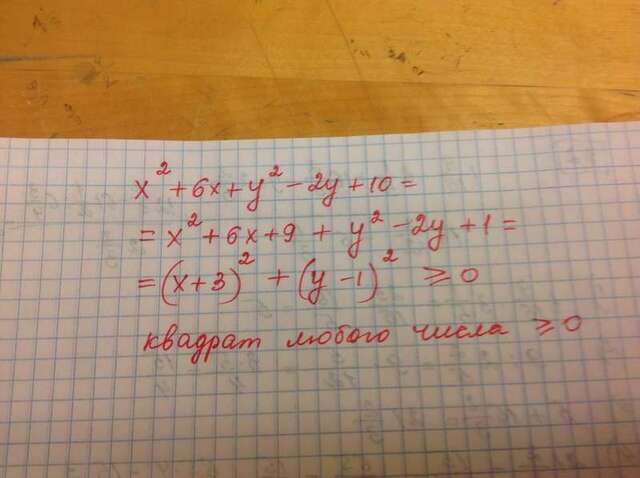 x² + 6x + y² - 2y + 10 =
= x² + 6x + 9 + y² - 2y + 1 =
= (x + 3)² + (y - 1)² ⩾ 0
квадрат любого числа ⩾ 0